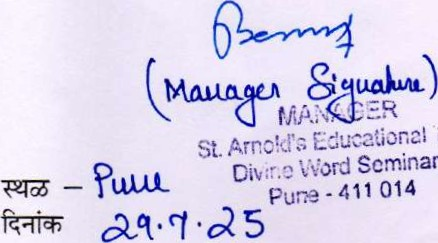 (Manager Signature)
MANAGER
St. Arnold's Educational
Divine Word Seminar
Pune - 411 014
स्थळ - Pune
दिनांक 29.7.25